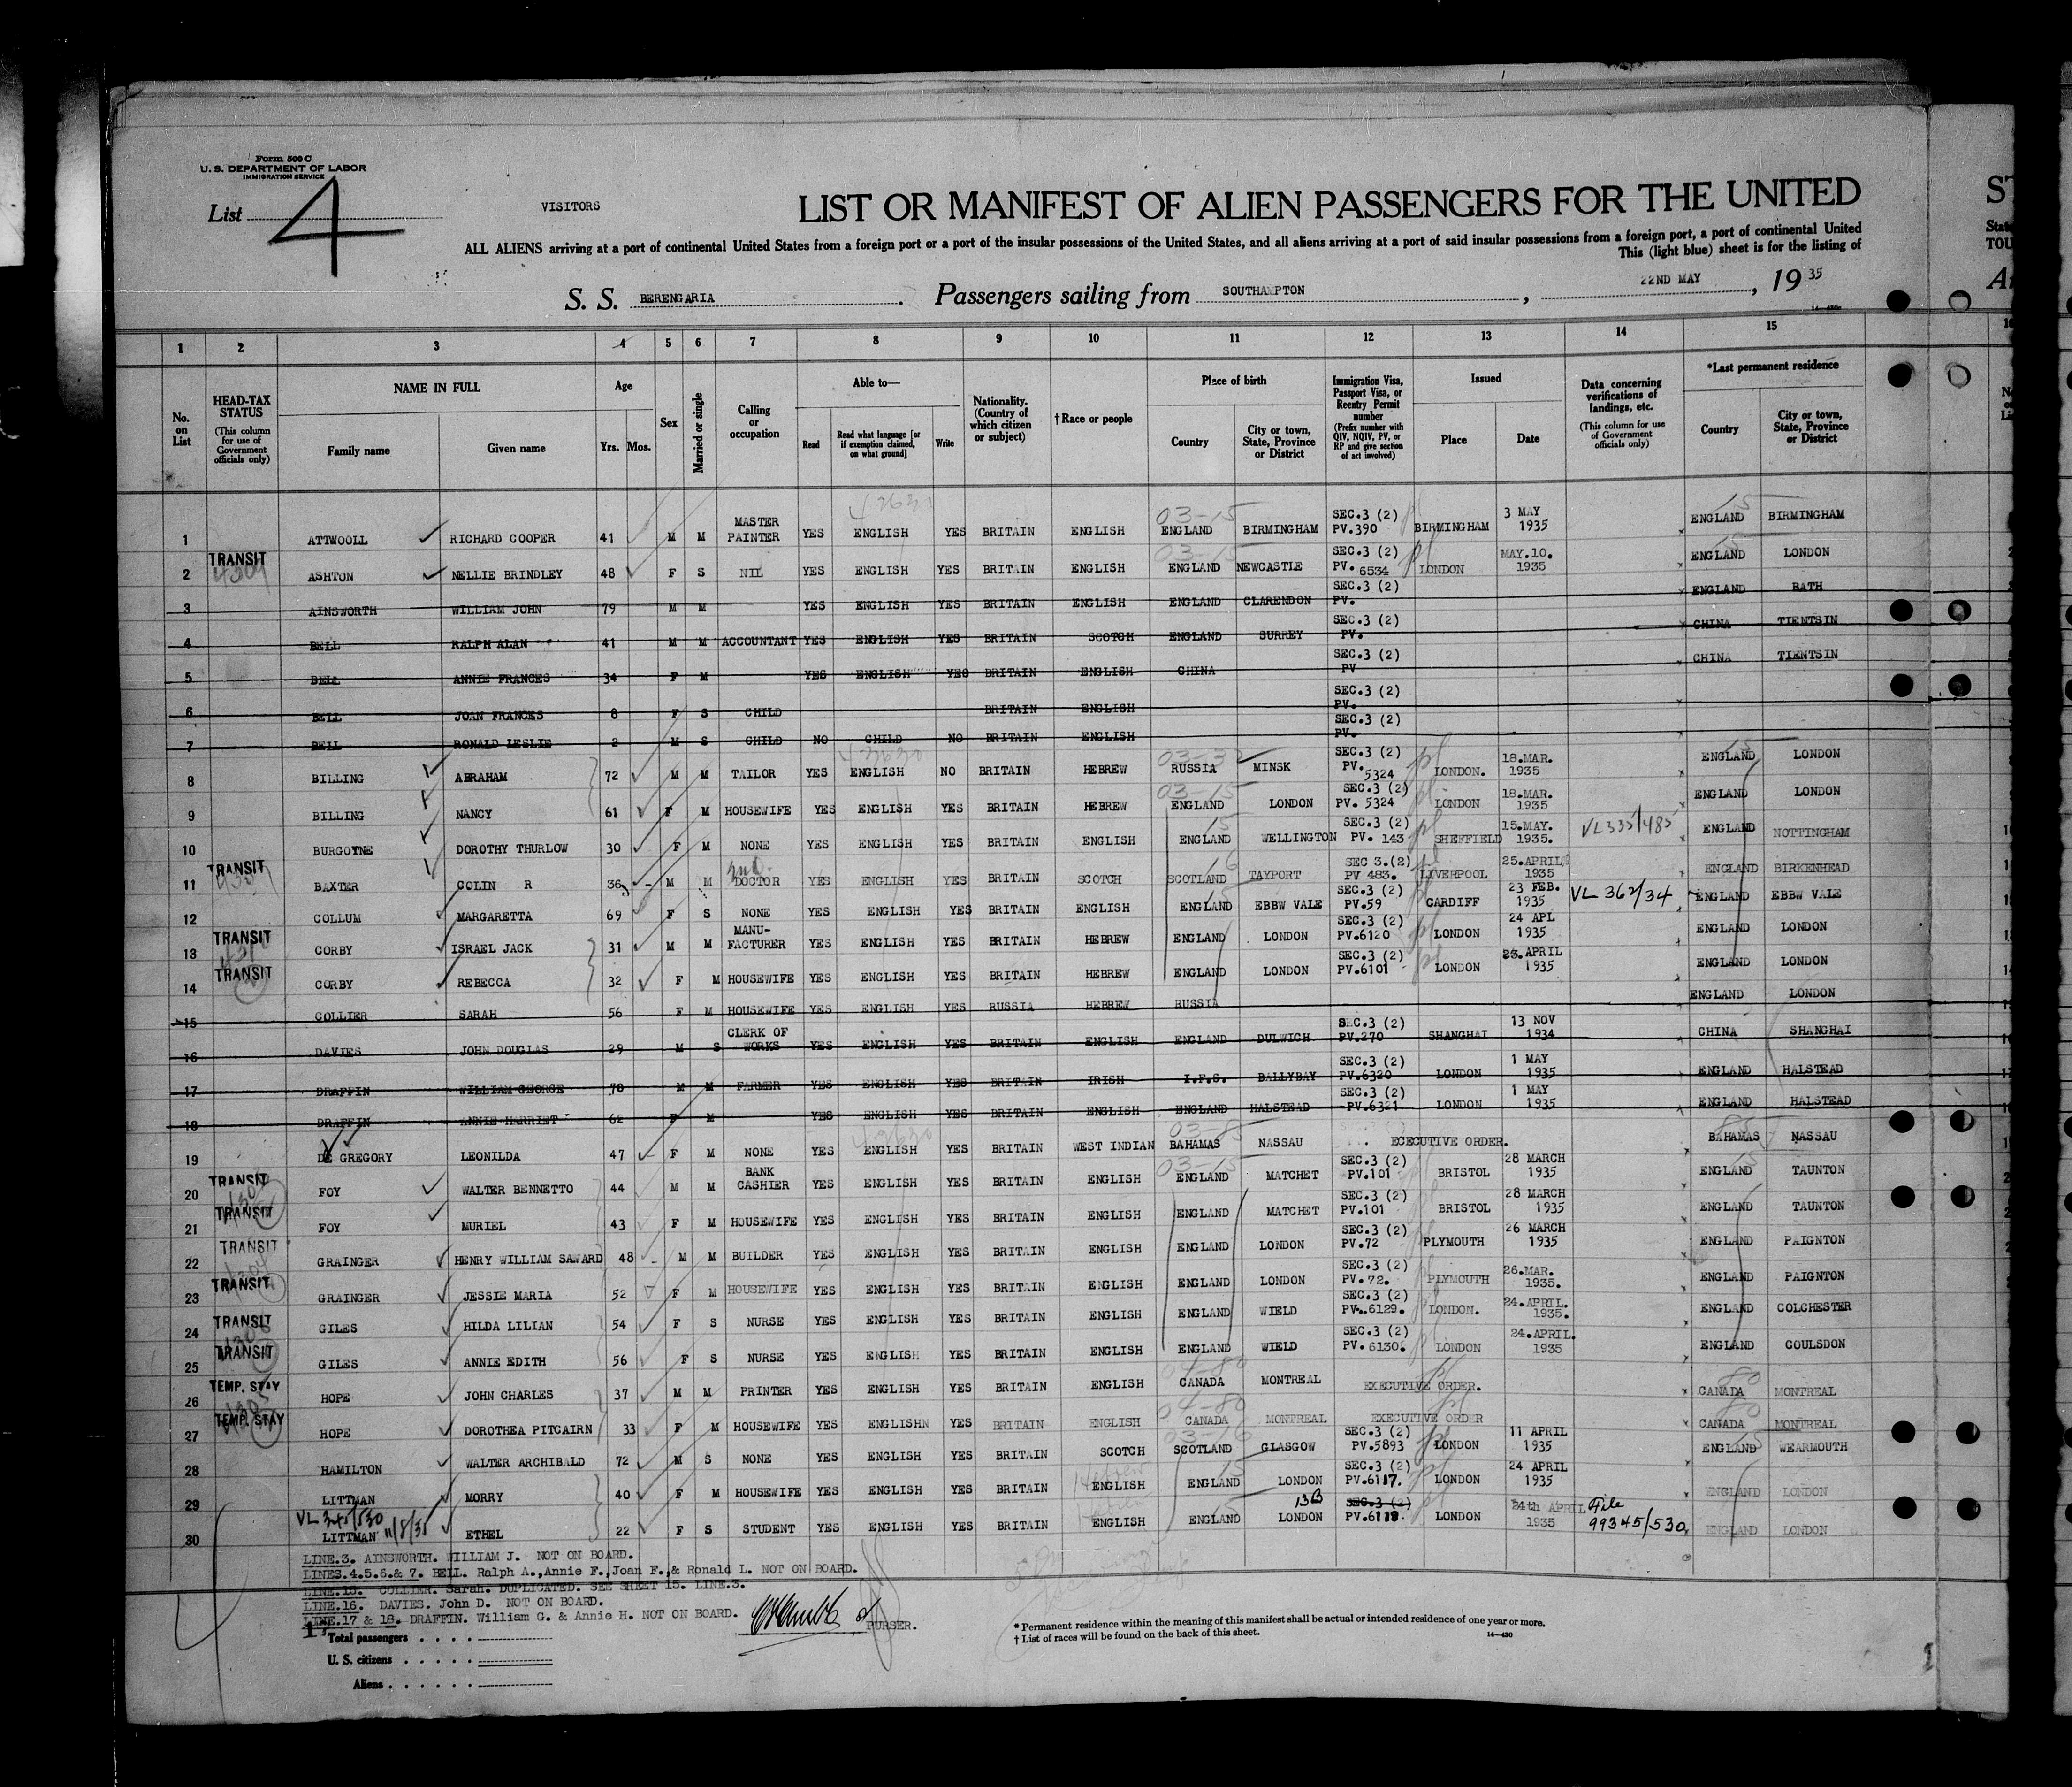 Form 500 C
U. S. DEPARTMENT OF LABOR
IMMIGRATION SERVICE
List 4
VISITORS
LIST OR MANIFEST OF ALIEN PASSENGERS FOR THE UNITED
ALL ALIENS arriving at a port of continental United States from a foreign port or a port of the insular possessions of the United States, and all aliens arriving at a port of said insular possessions from a foreign port, a port of continental United
This (light blue) sheet is for the listing of
S. S. BERENGARIA. Passengers sailing from SOUTHAMPTON, 22ND MAY, 19 35
1 2 3 4 5 6 7 8 9 10 11 12 13 14 15
No. on List
HEAD-TAX STATUS (This column for use of Government officials only)
NAME IN FULL Family name Given name
Age Yrs. Mos.
Sex
Married or single
Calling or occupation
Able to— Read Read what language [or if exemption claimed, on what ground] Write
Nationality. (Country of which citizen or subject)
† Race or people
Place of birth Country City or town, State, Province or District
Immigration Visa, Passport Visa, or Reentry Permit number (Prefix number with QIV, NQIV, PV, or RP and give section of act involved)
Issued Place Date
Data concerning verifications of landings, etc. (This column for use of Government officials only)
*Last permanent residence Country City or town, State, Province or District
1 ATTWOOLL RICHARD COOPER 41 M M MASTER PAINTER YES ENGLISH YES BRITAIN ENGLISH 03-15 ENGLAND BIRMINGHAM SEC.3 (2) PV.390 BIRMINGHAM 3 MAY 1935 ENGLAND BIRMINGHAM
2 TRANSIT ASHTON NELLIE BRINDLEY 48 F S NIL YES ENGLISH YES BRITAIN ENGLISH 03-15 ENGLAND NEWCASTLE SEC.3 (2) PV. 6534 LONDON MAY.10. 1935 ENGLAND LONDON
3 AINSWORTH WILLIAM JOHN 79 M M YES ENGLISH YES BRITAIN ENGLISH ENGLAND CLARENDON SEC.3 (2) PV. ENGLAND BATH
4 BELL RALPH ALAN 41 M M ACCOUNTANT YES ENGLISH YES BRITAIN SCOTCH ENGLAND SURREY SEC.3 (2) PV. CHINA TIENTSIN
5 BELL ANNIE FRANCES 34 F M YES ENGLISH YES BRITAIN ENGLISH CHINA SEC.3 (2) PV CHINA TIENTSIN
6 BELL JOAN FRANCES 8 F S CHILD BRITAIN ENGLISH SEC.3 (2) PV.
7 BELL RONALD LESLIE 2 M S CHILD NO CHILD NO BRITAIN ENGLISH SEC.3 (2) PV.
8 BILLING ABRAHAM 72 M M TAILOR YES ENGLISH NO BRITAIN HEBREW RUSSIA MINSK SEC.3 (2) PV. 5324 LONDON. 18.MAR. 1935 ENGLAND LONDON
9 BILLING NANCY 61 F M HOUSEWIFE YES ENGLISH YES BRITAIN HEBREW 03-15 ENGLAND LONDON SEC.3 (2) PV. 5324 LONDON 18.MAR. 1935 ENGLAND LONDON
10 BURGOYNE DOROTHY THURLOW 30 F M NONE YES ENGLISH YES BRITAIN ENGLISH ENGLAND WELLINGTON SEC.3 (2) PV. 143 SHEFFIELD 15.MAY. 1935. VL335/485 ENGLAND NOTTINGHAM
11 TRANSIT BAXTER COLIN R 36 M M DOCTOR YES ENGLISH YES BRITAIN SCOTCH SCOTLAND TAYPORT SEC 3.(2) PV 483. LIVERPOOL 25.APRIL 1935 ENGLAND BIRKENHEAD
12 COLLUM MARGARETTA 69 F S NONE YES ENGLISH YES BRITAIN ENGLISH ENGLAND EBBW VALE SEC.3 (2) PV.59 CARDIFF 23 FEB. 1935 VL 362/34 ENGLAND EBBW VALE
13 TRANSIT CORBY ISRAEL JACK 31 M M MANU- FACTURER YES ENGLISH YES BRITAIN HEBREW ENGLAND LONDON SEC.3 (2) PV.6120 LONDON 24 APL 1935 ENGLAND LONDON
14 TRANSIT CORBY REBECCA 32 F M HOUSEWIFE YES ENGLISH YES BRITAIN HEBREW ENGLAND LONDON SEC.3 (2) PV.6101 LONDON 23.APRIL 1935 ENGLAND LONDON
15 COLLIER SARAH 56 F M HOUSEWIFE YES ENGLISH YES RUSSIA HEBREW RUSSIA ENGLAND LONDON
16 DAVIES JOHN DOUGLAS 29 M S CLERK OF WORKS YES ENGLISH YES BRITAIN ENGLISH ENGLAND DULWICH SEC.3 (2) PV.270 SHANGHAI 13 NOV 1934 CHINA SHANGHAI
17 DRAFFIN WILLIAM GEORGE 70 M M FARMER YES ENGLISH YES BRITAIN IRISH I.F.S. BALLYBAY SEC.3 (2) PV.6320 LONDON 1 MAY 1935 ENGLAND HALSTEAD
18 DRAFFIN ANNIE HARRIET 62 F M YES ENGLISH YES BRITAIN ENGLISH ENGLAND HALSTEAD SEC.3 (2) PV.6321 LONDON 1 MAY 1935 ENGLAND HALSTEAD
19 DE GREGORY LEONILDA 47 F M NONE YES ENGLISH YES BRITAIN WEST INDIAN BAHAMAS NASSAU ECECUTIVE ORDER. BAHAMAS NASSAU
20 TRANSIT FOY WALTER BENNETTO 44 M M BANK CASHIER YES ENGLISH YES BRITAIN ENGLISH 03-15 ENGLAND MATCHET SEC.3 (2) PV.101 BRISTOL 28 MARCH 1935 ENGLAND TAUNTON
21 TRANSIT FOY MURIEL 43 F M HOUSEWIFE YES ENGLISH YES BRITAIN ENGLISH ENGLAND MATCHET SEC.3 (2) PV.101 BRISTOL 28 MARCH 1935 ENGLAND TAUNTON
22 TRANSIT GRAINGER HENRY WILLIAM SAWARD 48 M M BUILDER YES ENGLISH YES BRITAIN ENGLISH ENGLAND LONDON SEC.3 (2) PV.72 PLYMOUTH 26 MARCH 1935 ENGLAND PAIGNTON
23 TRANSIT GRAINGER JESSIE MARIA 52 F M HOUSEWIFE YES ENGLISH YES BRITAIN ENGLISH ENGLAND LONDON SEC.3 (2) PV. 72. PLYMOUTH 26.MAR. 1935. ENGLAND PAIGNTON
24 TRANSIT GILES HILDA LILIAN 54 F S NURSE YES ENGLISH YES BRITAIN ENGLISH ENGLAND WIELD SEC.3 (2) PV..6129. LONDON. 24.APRIL. 1935. ENGLAND COLCHESTER
25 TRANSIT GILES ANNIE EDITH 56 F S NURSE YES ENGLISH YES BRITAIN ENGLISH ENGLAND WIELD SEC.3 (2) PV. 6130. LONDON 24.APRIL. 1935 ENGLAND COULSDON
26 TEMP. STAY HOPE JOHN CHARLES 37 M M PRINTER YES ENGLISH YES BRITAIN ENGLISH 04-80 CANADA MONTREAL EXECUTIVE ORDER. CANADA MONTREAL
27 TEMP. STAY HOPE DOROTHEA PITCAIRN 33 F M HOUSEWIFE YES ENGLISHN YES BRITAIN ENGLISH 04-80 CANADA MONTREAL EXECUTIVE ORDER CANADA MONTREAL
28 HAMILTON WALTER ARCHIBALD 72 M S NONE YES ENGLISH YES BRITAIN SCOTCH 03-16 SCOTLAND GLASGOW SEC.3 (2) PV.5893 LONDON 11 APRIL 1935 ENGLAND WEARMOUTH
29 LITTMAN MORRY 40 F M HOUSEWIFE YES ENGLISH YES BRITAIN ENGLISH ENGLAND LONDON SEC.3 (2) PV.6117. LONDON 24 APRIL 1935 ENGLAND LONDON
30 VL 345/530 11/8/35 LITTMAN ETHEL 22 F S STUDENT YES ENGLISH YES BRITAIN ENGLISH ENGLAND LONDON 13B SEC.3 (2) PV.6118. LONDON 24th APRIL 1935 File 99345/530 ENGLAND LONDON
LINE.3. AINSWORTH. WILLIAM J. NOT ON BOARD.
LINES.4.5.6.& 7. BELL. Ralph A.,Annie F.,Joan F.,& Ronald L. NOT ON BOARD.
LINE.15. COLLIER. Sarah. DUPLICATED. SEE SHEET 15. LINE.3.
LINE.16. DAVIES. John D. NOT ON BOARD.
LINE.17 & 18. DRAFFIN. William G. & Annie H. NOT ON BOARD.
PURSER.
Total passengers
U. S. citizens
Aliens
* Permanent residence within the meaning of this manifest shall be actual or intended residence of one year or more.
† List of races will be found on the back of this sheet.
14—430